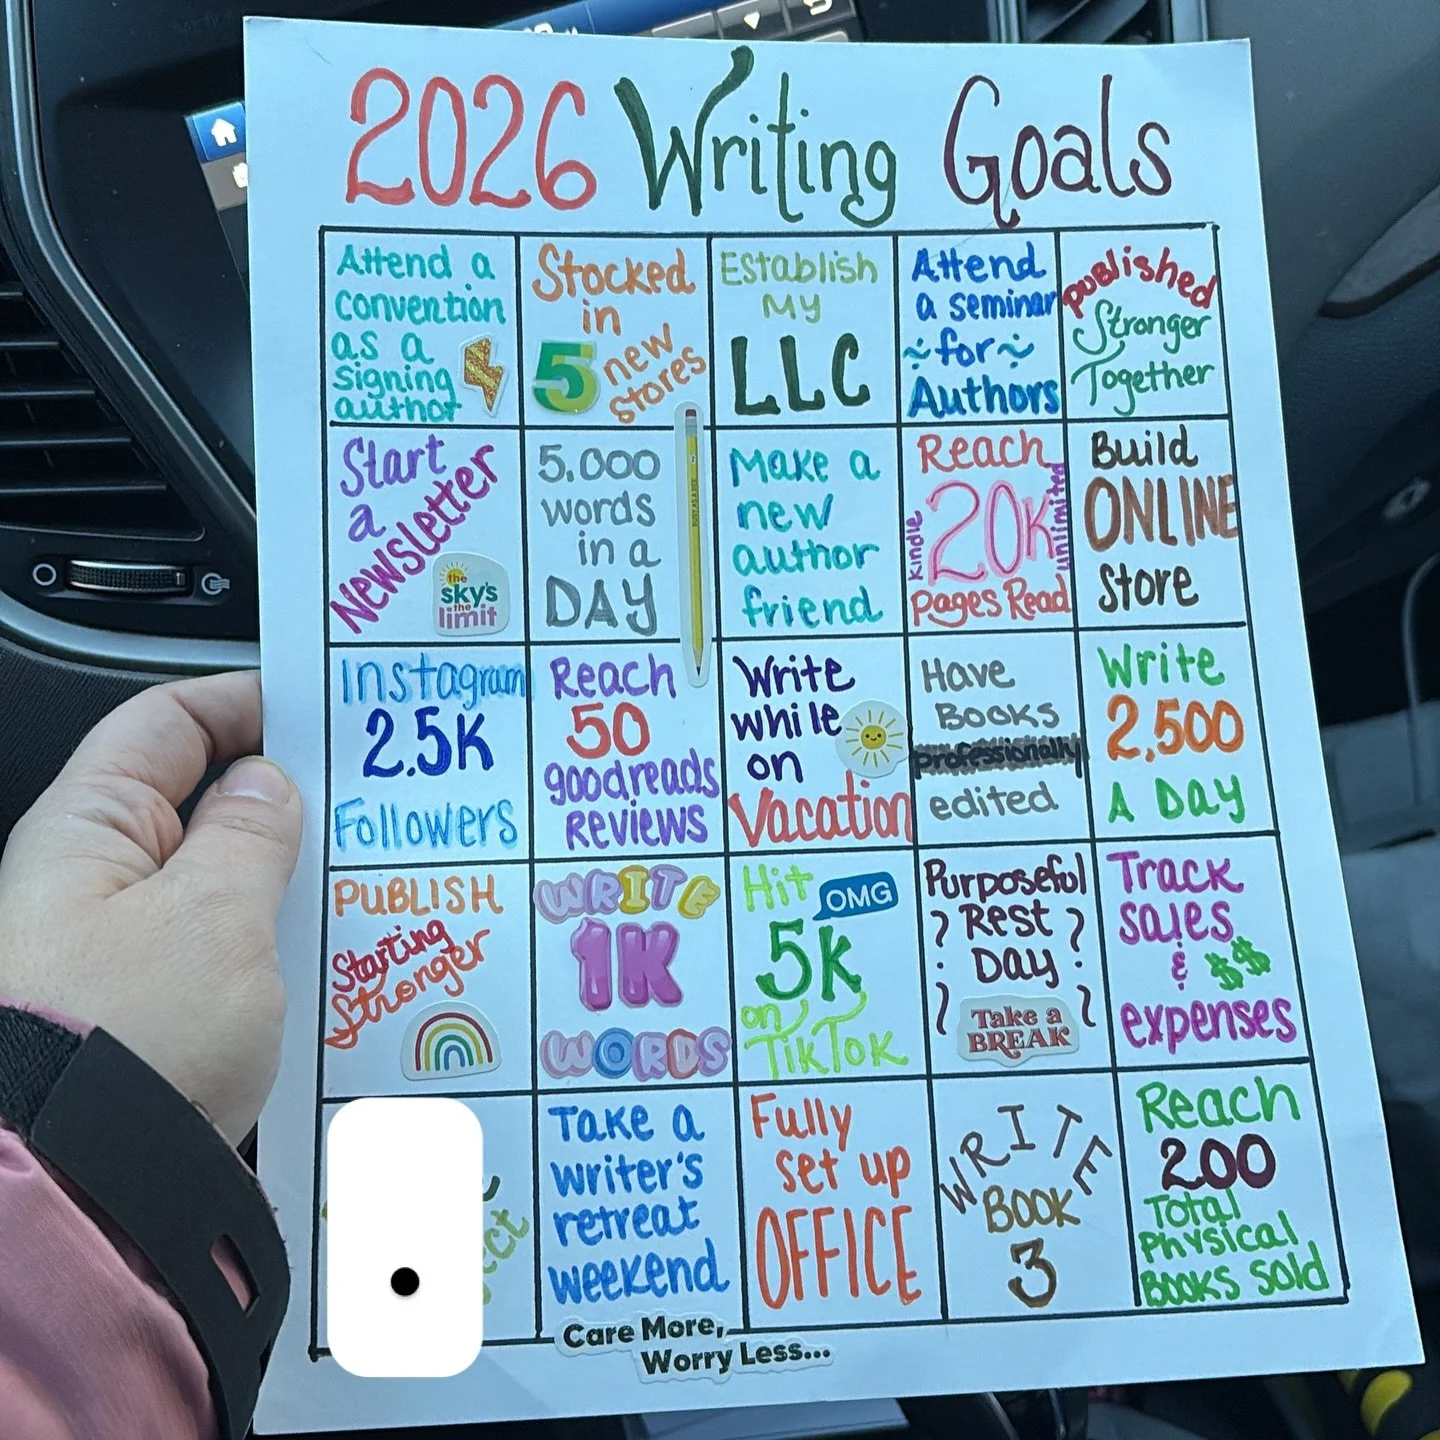 2026 Writing Goals
Attend a
convention
as a
signing
author
Stocked
in
5 new
stores
Establish
My
LLC
Attend
a seminar
~for~
Authors
Published
Stronger
Together
Start
a
Newsletter
the
sky's
the
limit
5,000
words
in a
DAY
Make a
new
author
friend
Reach
Kindle 20K unlimited
Pages Read
Build
ONLINE
Store
Instagram
2.5K
Followers
Reach
50
goodreads
Reviews
Write
while
on
Vacation
Have
Books
professionally
edited
Write
2,500
A Day
PUBLISH
Starting
Stronger
WRITE
1K
WORDS
Hit OMG
5K
on
TikTok
Purposeful
Rest
Day
Take a
BREAK
Track
sales
& $$
expenses
Take a
writer's
retreat
weekend
Fully
set up
OFFICE
WRITE
BOOK
3
Reach
200
Total
Physical
Books Sold
Care More,
Worry Less...